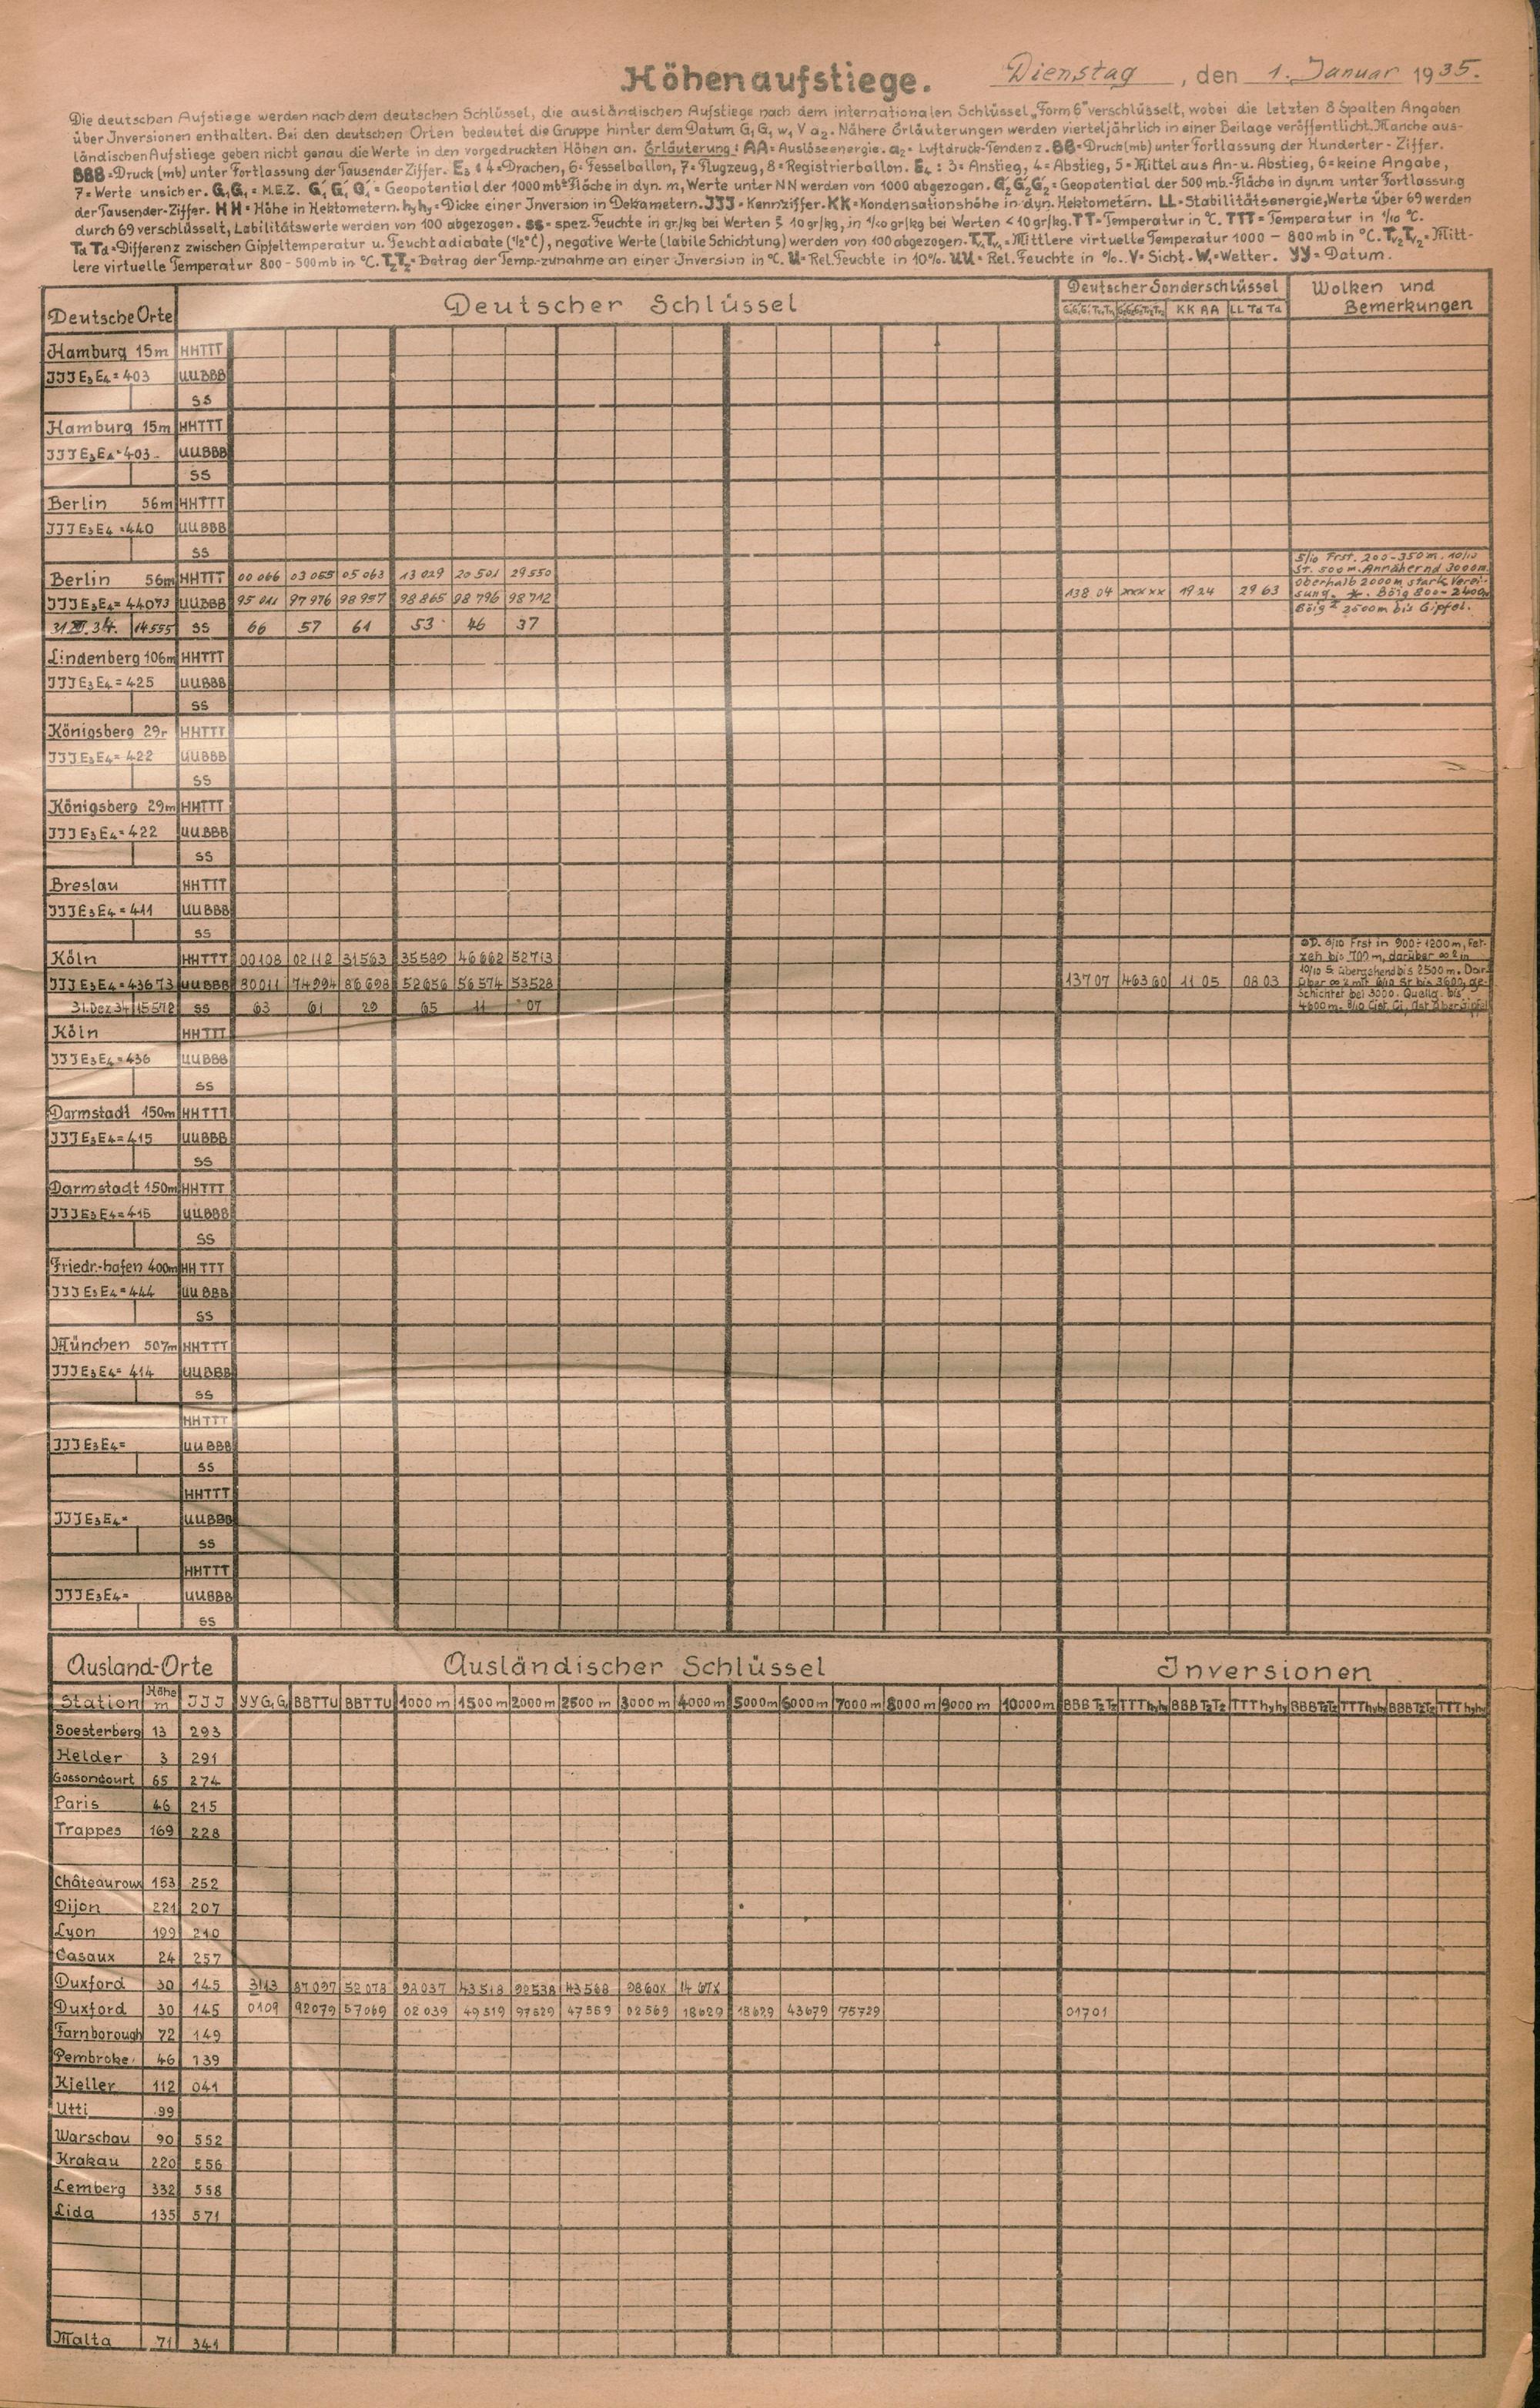 Höhenaufstiege. Dienstag, den 1. Januar 1935.
Die deutschen Aufstiege werden nach dem deutschen Schlüssel, die ausländischen Aufstiege nach dem internationalen Schlüssel „Form 6" verschlüsselt, wobei die letzten 8 Spalten Angaben
über Inversionen enthalten. Bei den deutschen Orten bedeutet die Gruppe hinter dem Datum G₁ G₁ w₁ V a₂. Nähere Erläuterungen werden vierteljährlich in einer Beilage veröffentlicht. Manche aus-
ländischen Aufstiege geben nicht genau die Werte in den vorgedruckten Höhen an. Erläuterung: AA = Auslöseenergie. a₂ = Luftdruck-Tendenz. BB = Druck (mb) unter Fortlassung der Hunderter-Ziffer.
BBB = Druck (mb) unter Fortlassung der Tausender Ziffer. E₃: 4 = Drachen, 6 = Fesselballon, 7 = Flugzeug, 8 = Registrierballon. E₄: 3 = Anstieg, 4 = Abstieg, 5 = Mittel aus An- u. Abstieg, 6 = keine Angabe,
7 = Werte unsicher. G₁G₁ = M.E.Z. G₁' G₁' G₁' = Geopotential der 1000 mb-Fläche in dyn. m, Werte unter NN werden von 1000 abgezogen. G₂'G₂'G₂' = Geopotential der 500 mb-Fläche in dyn.m unter Fortlassung
der Tausender-Ziffer. HH = Höhe in Hektometern. hyhy = Dicke einer Inversion in Dekametern. JJJ = Kennziffer. KK = Kondensationshöhe in dyn. Hektometern. LL = Stabilitätsenergie, Werte über 69 werden
durch 69 verschlüsselt, Labilitätswerte werden von 100 abgezogen. SS = spez. Feuchte in gr/kg bei Werten ≥ 10 gr/kg, in 1/10 gr/kg bei Werten < 10 gr/kg. TT = Temperatur in °C. TTT = Temperatur in 1/10 °C.
Ta Ta = Differenz zwischen Gipfeltemperatur u. Feuchtadiabate (1/2 °C), negative Werte (labile Schichtung) werden von 100 abgezogen. Tv₁Tv₁ = Mittlere virtuelle Temperatur 1000 – 800 mb in °C. Tv₂Tv₂ = Mitt-
lere virtuelle Temperatur 800 - 500 mb in °C. TzTz = Betrag der Temp.-zunahme an einer Inversion in °C. U = Rel. Feuchte in 10%. UU = Rel. Feuchte in %. V = Sicht. W₁ = Wetter. YY = Datum.
Deutsche Orte Deutscher Schlüssel Deutscher Sonderschlüssel Wolken und Bemerkungen
KK AA LL Ta Ta
Hamburg 15m HHTTT
JJJE₃E₄ = 403 UUBBB
SS
Hamburg 15m HHTTT
JJJE₃E₄ = 403 UUBBB
SS
Berlin 56m HHTTT
JJJE₃E₄ = 440 UUBBB
SS
Berlin 56m HHTTT 00 066 03 055 05 063 13 029 20 501 29 550
JJJE₃E₄ = 44073 UUBBB 95 011 97 976 98 957 98 865 98 796 98 712 138 04 xxxxx 19 24 29 63
31.XII.34. 14555 SS 66 57 61 53 46 37
5/10 Frst. 200-350m. 10/10
St. 500m. Annähernd 3000m.
Oberhalb 2000m stark Verei-
sung. Böig 800-2400m
Böig² 2500m bis Gipfel.
Lindenberg 106m HHTTT
JJJE₃E₄ = 425 UUBBB
SS
Königsberg 29 HHTTT
JJJE₃E₄ = 422 UUBBB
SS
Königsberg 29m HHTTT
JJJE₃E₄ = 422 UUBBB
SS
Breslau HHTTT
JJJE₃E₄ = 411 UUBBB
SS
Köln HHTTT 00108 02112 31563 35589 46662 52713
JJJE₃E₄ = 43673 UUBBB 80011 74994 86698 52656 56574 53528 13707 46360 11 05 08 03
31.Dez 34 15572 SS 63 61 29 65 11 07
6/10 Frst in 900-1200m, Fet-
zen bis 700m, darüber
10/10 übergehend bis 2500m. Dar-
über bis 3600, ge-
schichtet bei 3000. Quellg. bis
4600m.
Köln HHTTT
JJJE₃E₄ = 436 UUBBB
SS
Darmstadt 150m HHTTT
JJJE₃E₄ = 415 UUBBB
SS
Darmstadt 150m HHTTT
JJJE₃E₄ = 415 UUBBB
SS
Friedr.-hafen 400m HHTTT
JJJE₃E₄ = 444 UUBBB
SS
München 507m HHTTT
JJJE₃E₄ = 414 UUBBB
SS
HHTTT
JJJE₃E₄ = UUBBB
SS
HHTTT
JJJE₃E₄ = UUBBB
SS
HHTTT
JJJE₃E₄ = UUBBB
SS
Ausland-Orte Ausländischer Schlüssel Inversionen
Station Höhe m JJJ YYG₁G₁ BBTTU BBTTU 1000 m 1500 m 2000 m 2500 m 3000 m 4000 m 5000 m 6000 m 7000 m 8000 m 9000 m 10000 m BBB TzTz TTThyhy BBB TzTz TTThyhy BBBTzTz TTThyhy BBBTzTz TTThyhy
Soesterberg 13 293
Helder 3 291
Gossoncourt 65 274
Paris 46 215
Trappes 169 228
Châteauroux 153 252
Dijon 221 207
Lyon 199 210
Casaux 24 257
Duxford 30 145 3113 87097 52078 93037 43518 92538 43568 9860X 14 67X
Duxford 30 145 0109 92079 57069 02039 49519 97529 47559 02569 18629 18629 43679 75729 01701
Farnborough 72 149
Pembroke 46 139
Kjeller 112 041
Utti 99
Warschau 90 552
Krakau 220 556
Lemberg 332 558
Lida 135 571
Malta 71 341